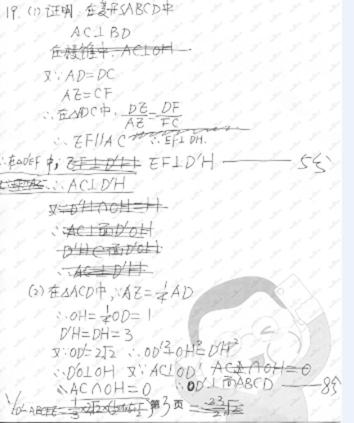 19. (1) 证明: 在菱形ABCD中
AC⊥BD
在棱锥中, AC⊥OH
又∵AD=DC
AE=CF
∴在△ADC中, DE/AE=DF/FC
∴EF∥AC ∴EF⊥DH.
∴在△D'EF中, EF⊥D'H EF⊥D'H —— 5分
∴AC⊥D'H
又∵D'H∩OH=H
∴AC⊥面D'OH
D'H∈面D'OH
∴AC⊥D'H
(2) 在△ACD中, ∵AE=¼AD
∴OH=¼OD=1
D'H=DH=3
又∵OD'=2√2 ∴OD'²+OH²=D'H²
∴D'O⊥OH 又∵AC⊥OD' AC∩OH=O
∴AC∩OH=O ∴OD'⊥面ABCD —— 8分
第3页